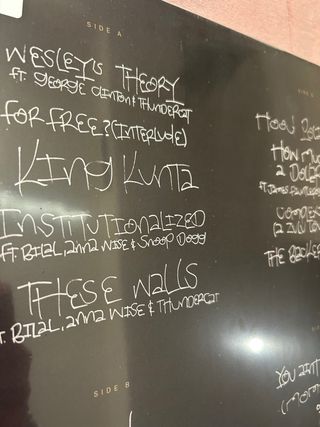 SIDE A
WESLEY'S THEORY
FT. GEORGE CLINTON & THUNDERCAT
FOR FREE? (INTERLUDE)
KING KUNTA
INSTITUTIONALIZED
FT. BILAL, ANNA WISE & SNOOP DOGG
THESE WALLS
FT. BILAL, ANNA WISE & THUNDERCAT
SIDE B
HOW MU
A DOLL
FT. JAMES
COMPLEX
THE BLACKER
YOU AIN'T
(MOM